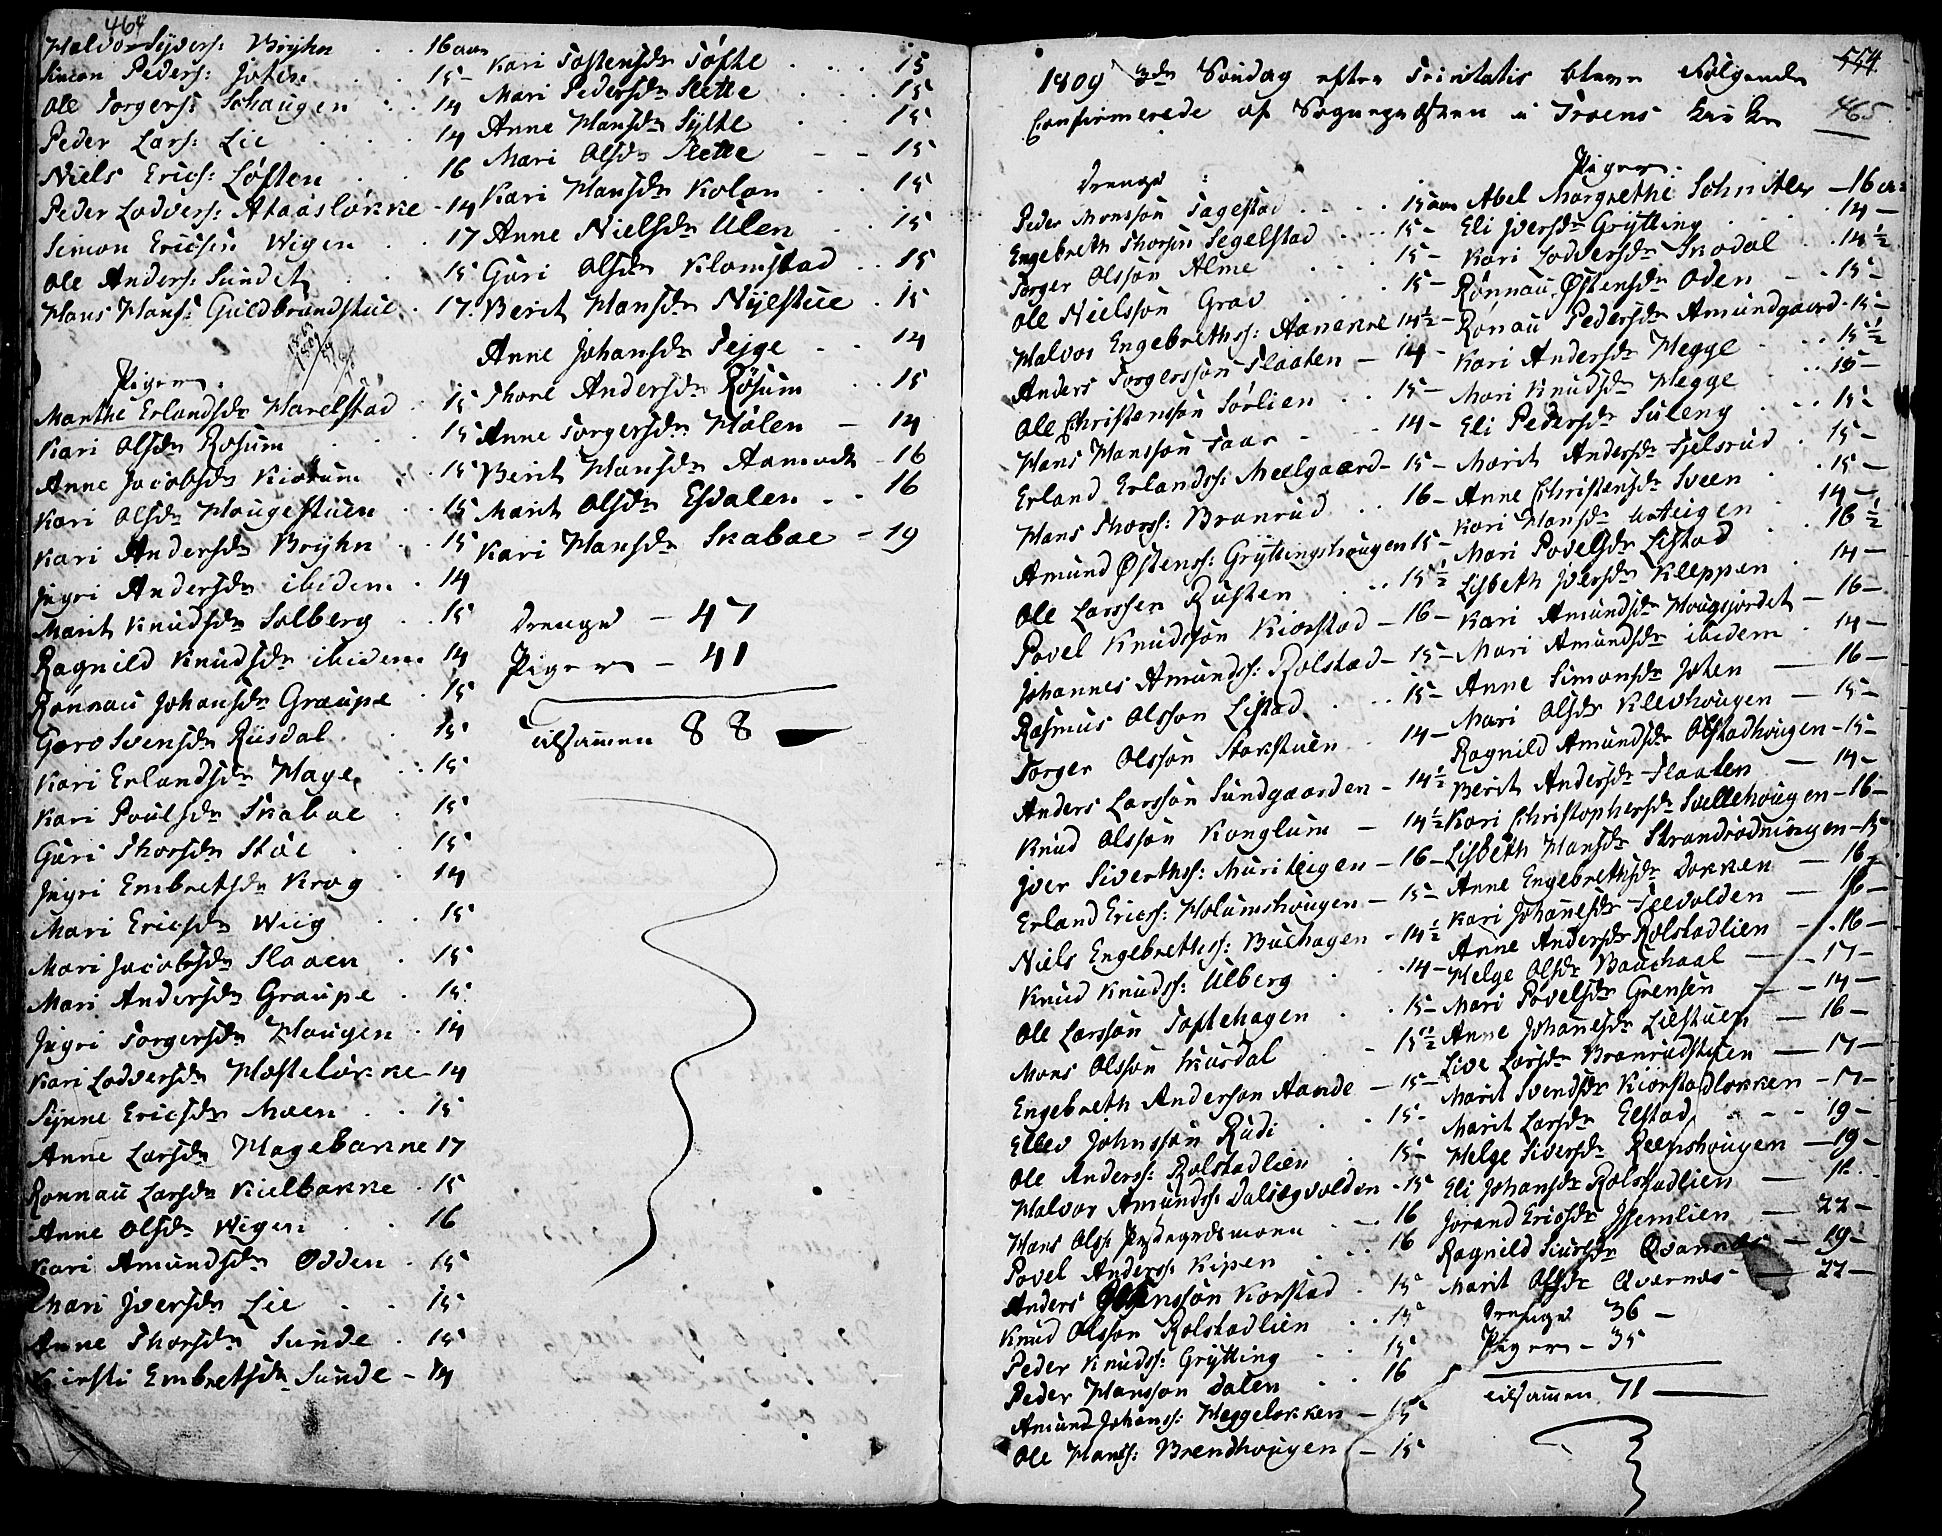 464
Halvor Syvers: Bryhn . . 16 aar
Simon Peders: Joten . . 15 -
Ole Torgers: Schaugen . . 14
Peder Lars: Lie . . . 14
Niels Erics: Løften . . 16
Peder Lodvers: Ataasløkke - 14
Simon Ericsen Wigen . . 17
Ole Anders: Sundet . . 15
Hans Hans: Guldbrandstue . 17.
Piger.
Marthe Erlandsdr Harelstad . 15
Kari Olsdr Rosum . . . 15
Anne Jacobsdr Kiorum . . 15
Kari Olsdr Haugestuen . . 15
Kari Andersdr Bryhn . . 15
Ingri Andersdr ibidem . 14
Marit Knudsdr Solberg . . 15
Ragnild Knudsdr ibidem. 14
Rønnau Johansdr Graupe . 15
Goro Svensdr Rusdal . . 15
Kari Erlandsdr Hage . . 15
Kari Poulsdr Skaboe . 15
Guri Thorsdr Støe . . 15
Ingri Embretsdr Krog . 14
Mari Ericsdr Wiig . . 15
Mari Jacobsdr Slaaen . 15
Mari Andersdr Graupe . 15
Ingri Torgersdr Haugen . 14
Kari Lodversdr Hosteløkke 14
Synne Ericsdr Moen . . 15
Anne Larsdr Hagebakke 17
Rønnau Larsdr Kielbakke . 15
Anne Olsdr Wigen . . 16
Kari Amundsdr Odden . 15
Mari Iversdr Lie . . 15
Anne Thorsdr Sunde . 15
Kirsti Embretsdr Sunde - 14
Kari Tostensdr Tofte . . . 15
Mari Pedersdr Slette . . . 15
Anne Hansdr Sylte . . 15
Mari Olsdr Slette - - 15
Kari Hansdr Kolan . . 15
Anne Nielsdr Ulen . . 15
Guri Olsdr Klomstad . . 15
Berit Hansdr Nylstue . 15
Anne Johansdr Teige . . 14
Thore Andersdr Røsum . . 15
Anne Torgersdr Holen - 14
Berit Hansdr Aamodt - 16
Marit Olsdr Esdalen . . 16
Kari Hansdr Skaboe - 19
Drenge - 47
Piger - 41
tilsammen 88
1809 3de Søndag efter Trinitatis bleve følgende
Confirmerede af Sognepræsten i Froens Kirke
554
465
Drenge:
Peder Monsson Tagestad . . . 15 aar
Engebreth Thorsen Segelstad . . 15 -
Torger Olsson Alme . . . 15 -
Ole Nielsson Grav . . . 15 -
Halvor Engebrethss: Aanekke 14½ -
Anders Torgersson Flaaten - 14 -
Ole Christensson Sørlien . . 15 -
Hans Hansson Faar - . 14 -
Erland Erlandss: Meelgaard - 15 -
Hans Thorss: Branrud . . 16 -
Amund Østenss: Gryttingshougen 15 -
Ole Larssen Rusten . . 15½
Povel Knudsson Kiorstad - 16 -
Johannes Amundss: Rolstad - 15 -
Rasmus Olsson Listad . . . 15 -
Torger Olsson Storstuen . 14 -
Anders Larsson Sundgaarden - 14½
Knud Olsson Konglum - 14½
Iver Siverthss: Muriteigen - 16 -
Erland Ericss: Holumshougen - 15 -
Niels Engebrethss: Buehagen - 14½
Knud Knudss: Ulberg . . 14 -
Ole Larsson Toftehagen . . 15 -
Mons Olsson Musdal . - 15½
Engebreth Anderson Aande - 15 -
Ellev Johnsson Rudi . . 15 -
Ole Anderss: Rolstadlien . 15 -
Halvor Amundss: Dalsegvolden - 15
Hans Olss: . - 16
Povel Anderss: Kipen . . . 16
Anders Korstad . 15
Knud Olsson Rolstadlien . . 15
Peder Knudss: Grytting . . 15
Peder Hansson Dalen . . 16
Amund Johanss: Heggeløkken - 15
Ole Hanss: Brendhougen - 15
Piger.
Abel Margrethe Schnitler - 16 aar
Eli Iversdr Grytting . . . 14 -
Kari Lodversdr Skodal . . 14½
Rønnau Østensdr Oden - . 15 -
Rønau Pedersdr Amundgaard . 15 -
Kari Andersdr Hegge . . 15½
Mari Knudsdr Hegge . . 15 -
Eli Pedersdr Suleng . . . 15 -
Marit Andersdr Fjelsrud . 15 -
Anne Christensdr Sveen . . 15 -
Kari Hansdr Uteigen . 14 -
Mari Povelsdr Listad . . 16½
Lisbeth Iversdr Kleppen . 14 -
Kari Amundsdr Hougsjordet - 16 -
Mari Amundsdr ibidem . 14 -
Anne Simonsdr Joten - 16 -
Mari Olsdr Klevhougen - 15 -
Ragnild Amundsdr Olstadhougen - 15 -
Berit Andersdr Flaaten - 14 -
Kari Christophersdr Svellehougen - 16 -
Lisbeth Hansdr Strandrødningen - 15
Anne Engebrethsdr Dokken - 16 -
Kari Johanesdr Teevolden - 16 -
Anne Andersdr Rolstadlien - . 16 -
Helge Olsdr Bauchaal - 17 -
Mari Povelsdr Grensen - - 14 -
Anne Johanesdr Liestuen - 16 -
Live Larsdr Branrudstuen - 17 -
Marit Svendsdr Kiorstadløkken - 17 -
Marit Larsdr Elstad . - - 19 -
Helge Siversdr Reepshougen - 19 -
Eli Johansdr Rolstadlien - 16 .
Jorand Ericsdr Hemlien - 22 -
Ragnild Siursdr Qvarnes - 19 -
Marit Olsdr Qvernes - 22 -
Drenge 36 -
Piger - 35
tilsammen 71